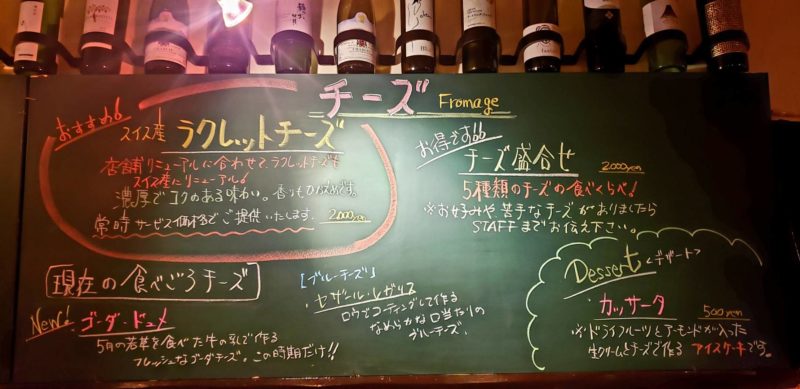 チーズ Fromage
おすすめ!
スイス産 ラクレットチーズ
店舗リニューアルに合わせて、ラクレットチーズも
スイス産にリニューアル!
濃厚でコクのある味わい。香りもひかえめです。
常時サービス価格でご提供いたします。 2,000yen
お得です!!
チーズ盛合せ 2,000yen
5種類のチーズの食べくらべ!
※お好みや苦手なチーズがありましたら
STAFFまでお伝え下さい。
現在の食べごろチーズ
New! ゴーダ・ドュメ
5月の若草を食べた牛の乳で作る
フレッシュなゴーダチーズ。この時期だけ!!
[ブルーチーズ]
・セザール・レガリス
ロウでコーティングして作る
なめらかな口当たりの
ブルーチーズ。
Dessert <デザート>
カッサータ 500yen
※ドライフルーツとアーモンドが入った
生クリームとチーズで作る アイスケーキです。